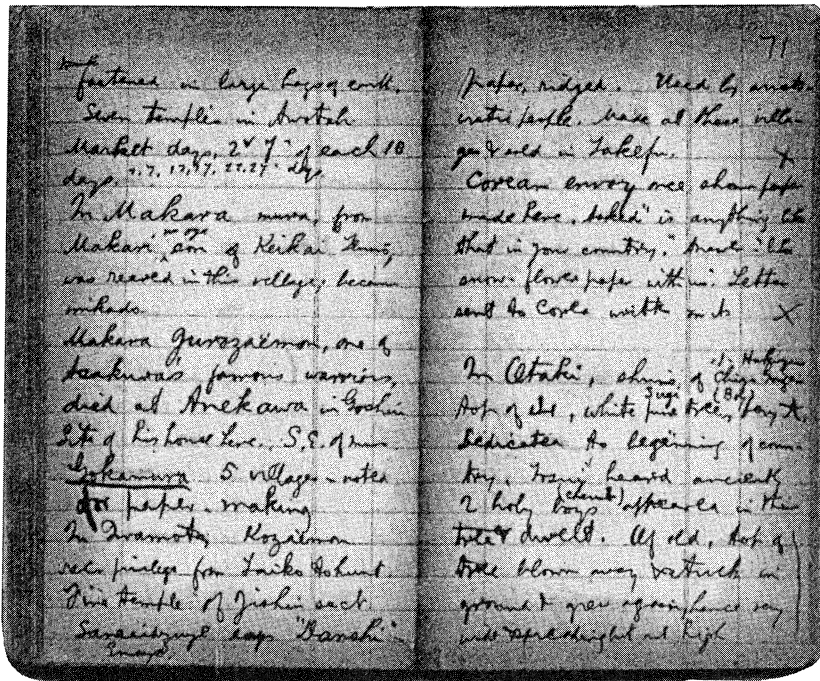 fastened in large bags of cloth.
Seven temples in Awotabi
Market days, 2 & 7 of each 10
days. 2, 7, 12, 17, 22, 27 days
In Makara mura, from
Makari, son of Keikai Tenno,
was reared in this village; became
mikado.
Makara Jurozaemon, one of
Asakura's famous warriors,
died at Anekawa in Goshiu
Site of his house here. S.E. of mura
Gokamura 5 villages noted
for paper-making
In Iwamoto, Kozaemon
privilege from Taiko to hunt.
Fine temple of Jishiu sect
says "Danshi"
71
paper, ridged. Used by aristo-
cratic people. Made at these villa-
ges & sold in Takefu. X
Corean envoy once shown paper
made here, asked "is anything like
that in your country." Answer "like
snow-flower paper with us." Letter
sent to Corea with it X
In Otaki, shrine of
top of, white pine tree,
(Sugi)
Dedicated to beginning of coun-
try. heard anciently
2 holy boys appeared in this
tree & dwelt. Of old, top of
tree blown away & stuck in
ground & grew again, hence
wide spreading but not high